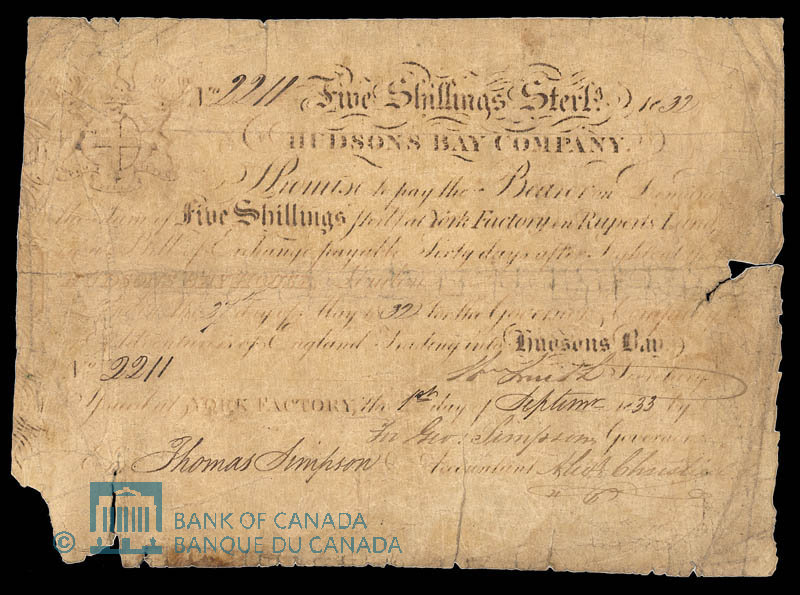 No. 2211 Five Shillings Sterlg. 1832
HUDSONS BAY COMPANY.
I Promise to pay the Bearer on Demand
the Sum of Five Shillings Sterlg. at York Factory in Ruperts Land
Bill of Exchange payable Sixty days after Sight
HUDSONS BAY HOUSE London
the 2nd day of May 1832 for the Governor & Company
Adventurers of England Trading into Hudsons Bay
No. 2211
Wm Smith Secretary
Issued at YORK FACTORY, the 1st day of Septemr 1833 by
For Geo. Simpson, Governor
Thomas Simpson Accountant Alexr Christie
© BANK OF CANADA
BANQUE DU CANADA